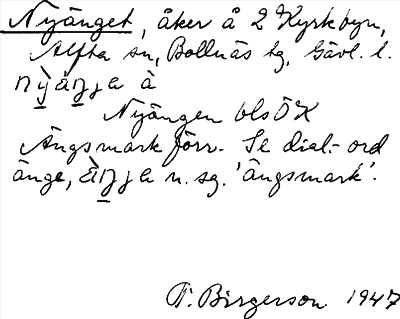 Nyänget, åker å 2 Kyrkbyn,
Alfta sn, Bollnäs tg, Gävl. l.
nỳäŋja à
Nyängen bls ÖK
Ängsmark förr. Se dial.-ord
änge, äŋja n. sg. 'ängsmark'.
F. Birgerson 1947